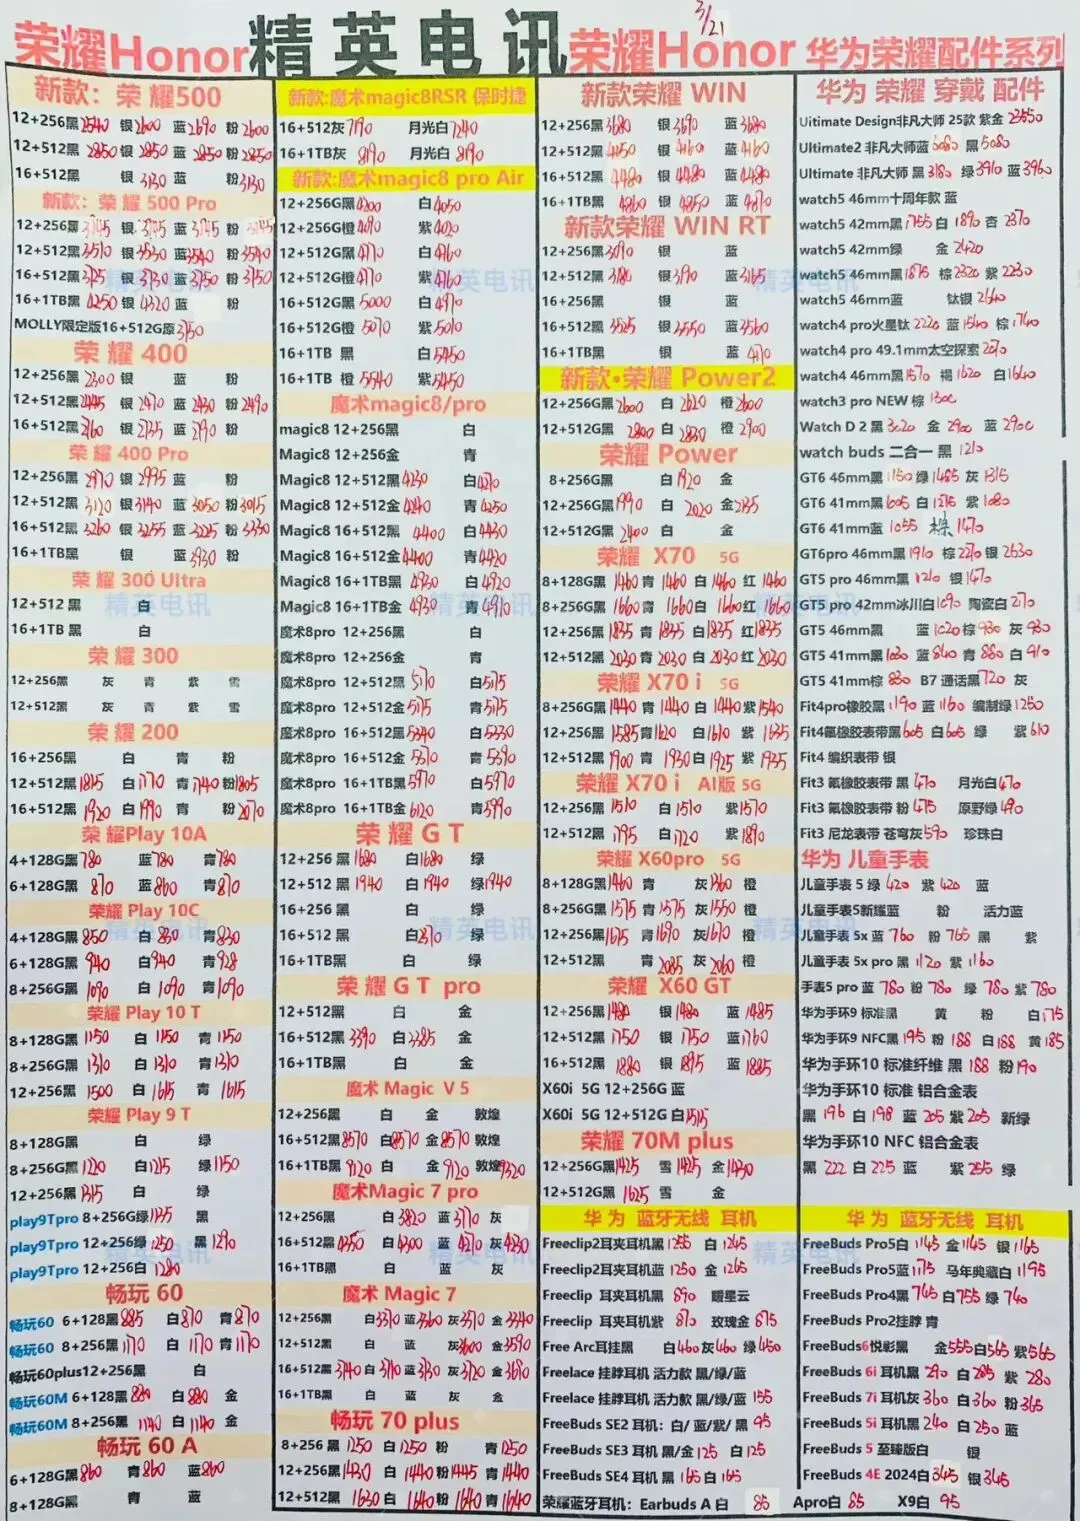 3/21
荣耀Honor 精英电讯 荣耀Honor 华为荣耀配件系列
新款：荣耀500
12+256黑2540 银2600 蓝2690 粉2600
12+512黑2850 银2850 蓝2850 粉2850
16+512黑 银3130 蓝 粉3130
新款：荣耀500 Pro
12+256黑3145 银3145 蓝3145 粉3145
12+512黑3510 银3530 蓝3540 粉3540
16+512黑3725 银3730 蓝3750 粉3750
16+1TB黑4250 银4320 蓝 粉
MOLLY限定版16+512G原3750
荣耀 400
12+256黑2300 银 蓝 粉
12+512黑2445 银2470 蓝2430 粉2490
16+512黑2760 银2735 蓝2790 粉
荣耀 400 Pro
12+256黑2970 银2995 蓝 粉
12+512黑3120 银3140 蓝3050 粉3015
16+512黑3260 银3255 蓝3225 粉3330
16+1TB黑 银 蓝3930 粉
荣耀 300 Ultra
12+512 黑 白
16+1TB 黑 白
荣耀 300
12+256黑 灰 青 紫 雪
12+512黑 灰 青 紫 雪
荣耀 200
16+256黑 白 青 粉
12+512黑1845 白1770 青1740 粉1805
16+512黑1920 白1990 青 粉2070
荣耀Play 10A
4+128G黑780 蓝780 青780
6+128G黑 870 蓝860 青870
荣耀 Play 10C
4+128G黑850 白850 青830
6+128G黑940 白940 青928
8+256G黑1090 白1090 青1090
荣耀 Play 10 T
8+128G黑1150 白1150 青1150
8+256G黑1310 白1310 青1310
12+256黑1500 白1615 青1615
荣耀 Play 9 T
8+128G黑 白 绿
8+256G黑1220 白1215 绿1150
12+256黑1315 白 绿
play9Tpro 8+256G绿1135 黑
play9Tpro 12+256绿1250 黑1290
play9Tpro 12+256白1280
畅玩 60
畅玩60 6+128黑885 白870 青870
畅玩60 8+256黑1170 白1170 青1170
畅玩60plus12+256黑 白
畅玩60M 6+128黑880 白880 金
畅玩60M 8+256黑1140 白1140 金
畅玩 60 A
6+128G黑860 青860 蓝860
8+128G黑 青 蓝
新款:魔术magic8RSR 保时捷
16+512灰7190 月光白7240
16+1TB灰 8190 月光白8190
新款:魔术magic8 pro Air
12+256G黑4200 白4050
12+256G橙4090 紫4020
12+512G黑4170 白4160
12+512G橙4170 紫4160
16+512G黑5000 白4970
16+512G橙5070 紫5010
16+1TB 黑 白5450
16+1TB 橙5540 紫5450
魔术magic8/pro
magic8 12+256黑 白
Magic8 12+256金 青
Magic8 12+512黑4230 白4270
Magic8 12+512金4240 青4250
Magic8 16+512黑 4400 白4430
Magic8 16+512金4400 青4420
Magic8 16+1TB黑4930 白4920
Magic8 16+1TB金4930 青4910
魔术8pro 12+256黑 白
魔术8pro 12+256金 青
魔术8pro 12+512黑5170 白5175
魔术8pro 12+512金5175 青5175
魔术8pro 16+512黑5340 白5330
魔术8pro 16+512金5370 青5390
魔术8pro 16+1TB黑5970 白5970
魔术8pro 16+1TB金6120 青5990
荣耀 G T
12+256 黑1680 白1680 绿
12+512 黑1940 白1940 绿1940
16+256 黑 白 绿
16+512 黑 白2370 绿
16+1TB黑 白 绿
荣耀 G T pro
12+512黑 白 金
16+512黑2390 白2385 金
16+1TB黑 白 金
魔术 Magic V 5
12+256黑 白 金 敦煌
16+512黑8570 白8570 金8570 敦煌
16+1TB黑9120 白 金9120 敦煌9320
魔术Magic 7 pro
12+256黑 白3820 蓝3770 灰
16+512黑4350 白4300 蓝4270 灰4230
16+1TB黑 白 蓝 灰
魔术 Magic 7
12+256黑 白3370 蓝3360 灰3370 金3340
12+512黑 白 蓝 灰3600 金3590
16+512黑3740 白3710 蓝3730 灰3720 金3690
16+1TB黑 白 蓝 灰 金
畅玩 70 plus
8+256 黑1250 白1250 粉 青1250
12+256黑1430 白1440 粉1445 青1440
12+512黑1630 白1640 粉1640 青1640
新款荣耀 WIN
12+256黑3680 银3690 蓝3680
12+512黑4150 银4160 蓝4160
16+512黑4480 银4480 蓝4480
16+1TB黑4860 银4850 蓝4870
新款荣耀 WIN RT
12+256黑3090 银 蓝
12+512黑3180 银3190 蓝3165
16+256黑 银 蓝
16+512黑3525 银3550 蓝3560
16+1TB黑 银 蓝4170
新款•荣耀 Power2
12+256G黑2600 白2620 橙2600
12+512G黑 2800 白2830 橙2900
荣耀 Power
8+256G黑 白1920 金
12+256G黑1990 白2020 金2135
12+512G黑2400 白 金
荣耀 X70 5G
8+128G黑1460 青1460 白1460 红1460
8+256G黑1660 青1660 白1660 红1660
12+256黑1835 青1835 白1835 红1835
12+512黑2030 青2030 白2030 红2030
荣耀 X70 i 5G
8+256G黑1440 青1440 白1440 紫1540
12+256黑1585 青1620 白1610 紫1635
12+512黑1900 青1930 白1925 紫1935
荣耀 X70 i AI版 5G
12+256黑1510 白1510 紫1570
12+512黑1795 白1720 紫1890
荣耀 X60pro 5G
8+128G黑1460 青 灰1360 橙
8+256G黑1575 青1575 灰1550 橙
12+256黑1675 青1690 灰1670 橙
12+512黑 青2085 灰2060 橙
荣耀 X60 GT
12+256黑1480 银1480 蓝1485
12+512黑1750 银1750 蓝1760
16+512黑1880 银1895 蓝1885
X60i 5G 12+256G 蓝
X60i 5G 12+512G 白1515
荣耀 70M plus
12+256G黑1425 雪1425 金1430
12+512G黑1625 雪 金
华为 蓝牙无线 耳机
Freeclip2耳夹耳机黑1255 白1245
Freeclip2耳夹耳机蓝1250 金1265
Freeclip 耳夹耳机黑 890 暖星云
Freeclip 耳夹耳机紫 870 玫瑰金875
Free Arc耳挂黑 白460 灰460 绿450
Freelace 挂脖耳机 活力款 黑/绿/蓝
Freelace 挂脖耳机 活力款 黑/绿/蓝 155
FreeBuds SE2 耳机：白/ 蓝/紫/ 黑 95
FreeBuds SE3 耳机 黑/金125 白125
FreeBuds SE4 耳机 黑165 白165
荣耀蓝牙耳机：Earbuds A 白 85 Apro白 85 X9白 95
华为 荣耀 穿戴 配件
Uitimate Design非凡大师 25款 紫金 23550
Ultimate2 非凡大师蓝5080 黑5080
Ultimate 非凡大师 黑3180 绿3910 蓝3960
watch5 46mm十周年款 蓝
watch5 42mm黑1755 白1890 杏2370
watch5 42mm绿 金2420
watch5 46mm黑1875 棕2320 紫2230
watch5 46mm蓝 钛银2640
watch4 pro火星钛2220 蓝1540 棕1740
watch4 pro 49.1mm太空探索2070
watch4 46mm黑1570 褐1620 白1640
watch3 pro NEW 棕1300
Watch D 2 黑3020 金2900 蓝2900
watch buds 二合一 黑1210
GT6 46mm黑1150 绿1485 灰1315
GT6 41mm黑1605 白1215 紫1080
GT6 41mm蓝1055 棕1470
GT6pro 46mm黑1910 棕2270 银2630
GT5 pro 46mm黑1210 银1470
GT5 pro 42mm冰川白1690 陶瓷白2170
GT5 46mm黑 蓝1020 棕930 灰930
GT5 41mm黑1030 蓝840 青880 白910
GT5 41mm棕880 B7 通话黑720 灰
Fit4pro橡胶黑1190 蓝1160 编制绿1250
Fit4氟橡胶表带黑605 白605 绿 紫610
Fit4 编织表带 银
Fit3 氟橡胶表带 黑470 月光白470
Fit3 氟橡胶表带 粉475 原野绿490
Fit3 尼龙表带 苍穹灰590 珍珠白
华为 儿童手表
儿童手表 5 绿420 紫420 蓝
儿童手表5新耀蓝 粉 活力蓝
儿童手表 5x 蓝760 粉765 黑 紫
儿童手表 5x pro 黑1120 紫1160
手表5 pro 蓝780 粉780 绿780 紫780
华为手环9 标准黑 黄 粉 白175
华为手环9 NFC黑195 粉188 白188 黄185
华为手环10 标准纤维 黑188 粉190
华为手环10 标准 铝合金表
黑196 白198 蓝205 紫205 新绿
华为手环10 NFC 铝合金表
黑222 白225 蓝 紫255 绿
华为 蓝牙无线 耳机
FreeBuds Pro5白1145 金1145 银1165
FreeBuds Pro5蓝1175 马年典藏白1195
FreeBuds Pro4黑745 白755 绿740
FreeBuds Pro2挂脖 青
FreeBuds6悦彰黑 金555 白565 紫565
FreeBuds 6i 耳机黑290 白285 紫280
FreeBuds 7i 耳机灰360 白360 粉365
FreeBuds 5i 耳机黑240 白250 蓝
FreeBuds 5 至臻版白 银
FreeBuds 4E 2024白345 银345
精英电讯